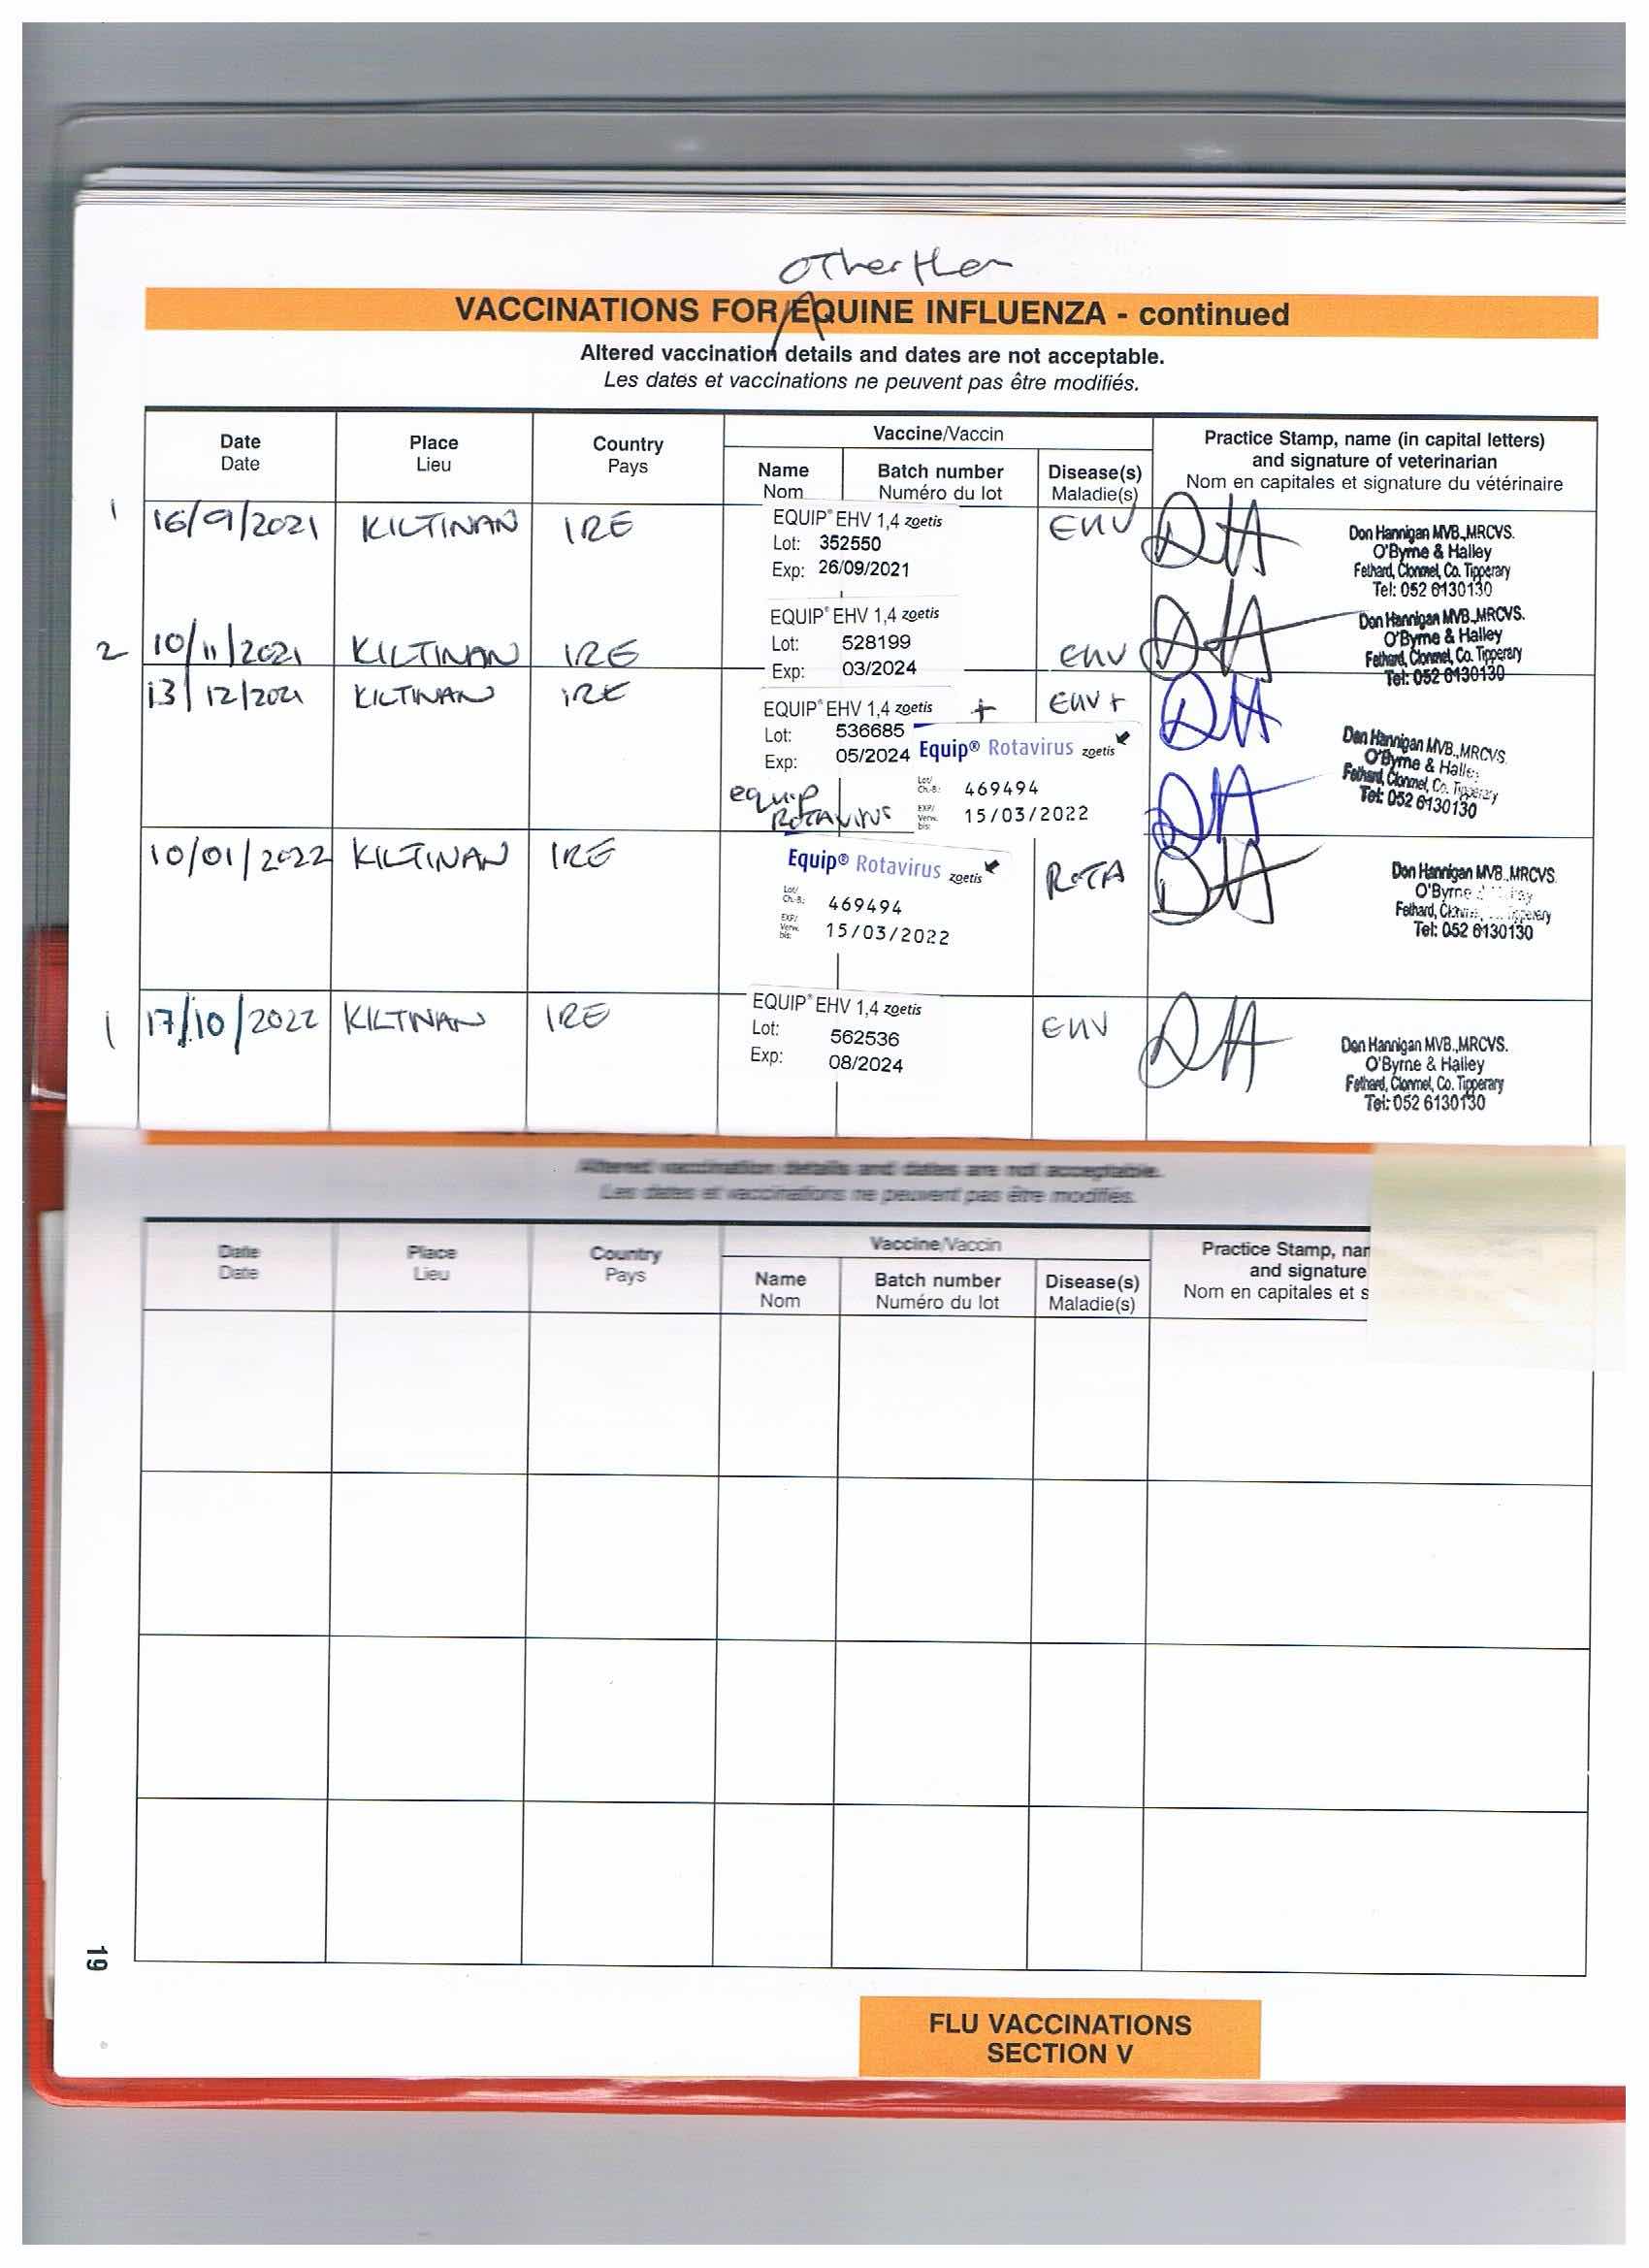 other than
VACCINATIONS FOR EQUINE INFLUENZA - continued
Altered vaccination details and dates are not acceptable.
Les dates et vaccinations ne peuvent pas être modifiés.
Date Place Country Vaccine/Vaccin Practice Stamp, name (in capital letters)
Date Lieu Pays Name Batch number Disease(s) and signature of veterinarian
Nom Numéro du lot Maladie(s) Nom en capitales et signature du vétérinaire
1 16/9/2021 KILTINAN IRE EQUIP® EHV 1,4 zoetis EHV DH Don Hannigan MVB.,MRCVS.
Lot: 352550 O'Byrne & Halley
Exp: 26/09/2021 Fethard, Clonmel, Co. Tipperary
Tel: 052 6130130
EQUIP® EHV 1,4 zoetis Don Hannigan MVB.,MRCVS.
2 10/11/2021 KILTINAN IRE Lot: 528199 EHV DH O'Byrne & Halley
Exp: 03/2024 Fethard, Clonmel, Co. Tipperary
Tel: 052 6130130
13/12/2021 KILTINAN IRE EQUIP® EHV 1,4 zoetis + EHV + DH Don Hannigan MVB.,MRCVS.
Lot: 536685 O'Byrne & Halley
Exp: 05/2024 Fethard, Clonmel, Co. Tipperary
Equip® Rotavirus zoetis Tel: 052 6130130
Lot/ Ch.-B.: 469494
EXP/ Verw. bis: 15/03/2022
equip DH
ROTAVIRUS
10/01/2022 KILTINAN IRE Equip® Rotavirus zoetis ROTA DH Don Hannigan MVB.,MRCVS.
Lot/ Ch.-B.: 469494 O'Byrne
EXP/ Verw. bis: 15/03/2022 Fethard, Tipperary
Tel: 052 6130130
1 17/10/2022 KILTINAN IRE EQUIP® EHV 1,4 zoetis EHV DH Don Hannigan MVB.,MRCVS.
Lot: 562536 O'Byrne & Halley
Exp: 08/2024 Fethard, Clonmel, Co. Tipperary
Tel: 052 6130130
Altered vaccination details and dates are not acceptable.
Les dates et vaccinations ne peuvent pas être modifiés.
Date Place Country Vaccine/Vaccin Practice Stamp, nar
Date Lieu Pays Name Batch number Disease(s) and signature
Nom Numéro du lot Maladie(s) Nom en capitales et s
19
FLU VACCINATIONS
SECTION V